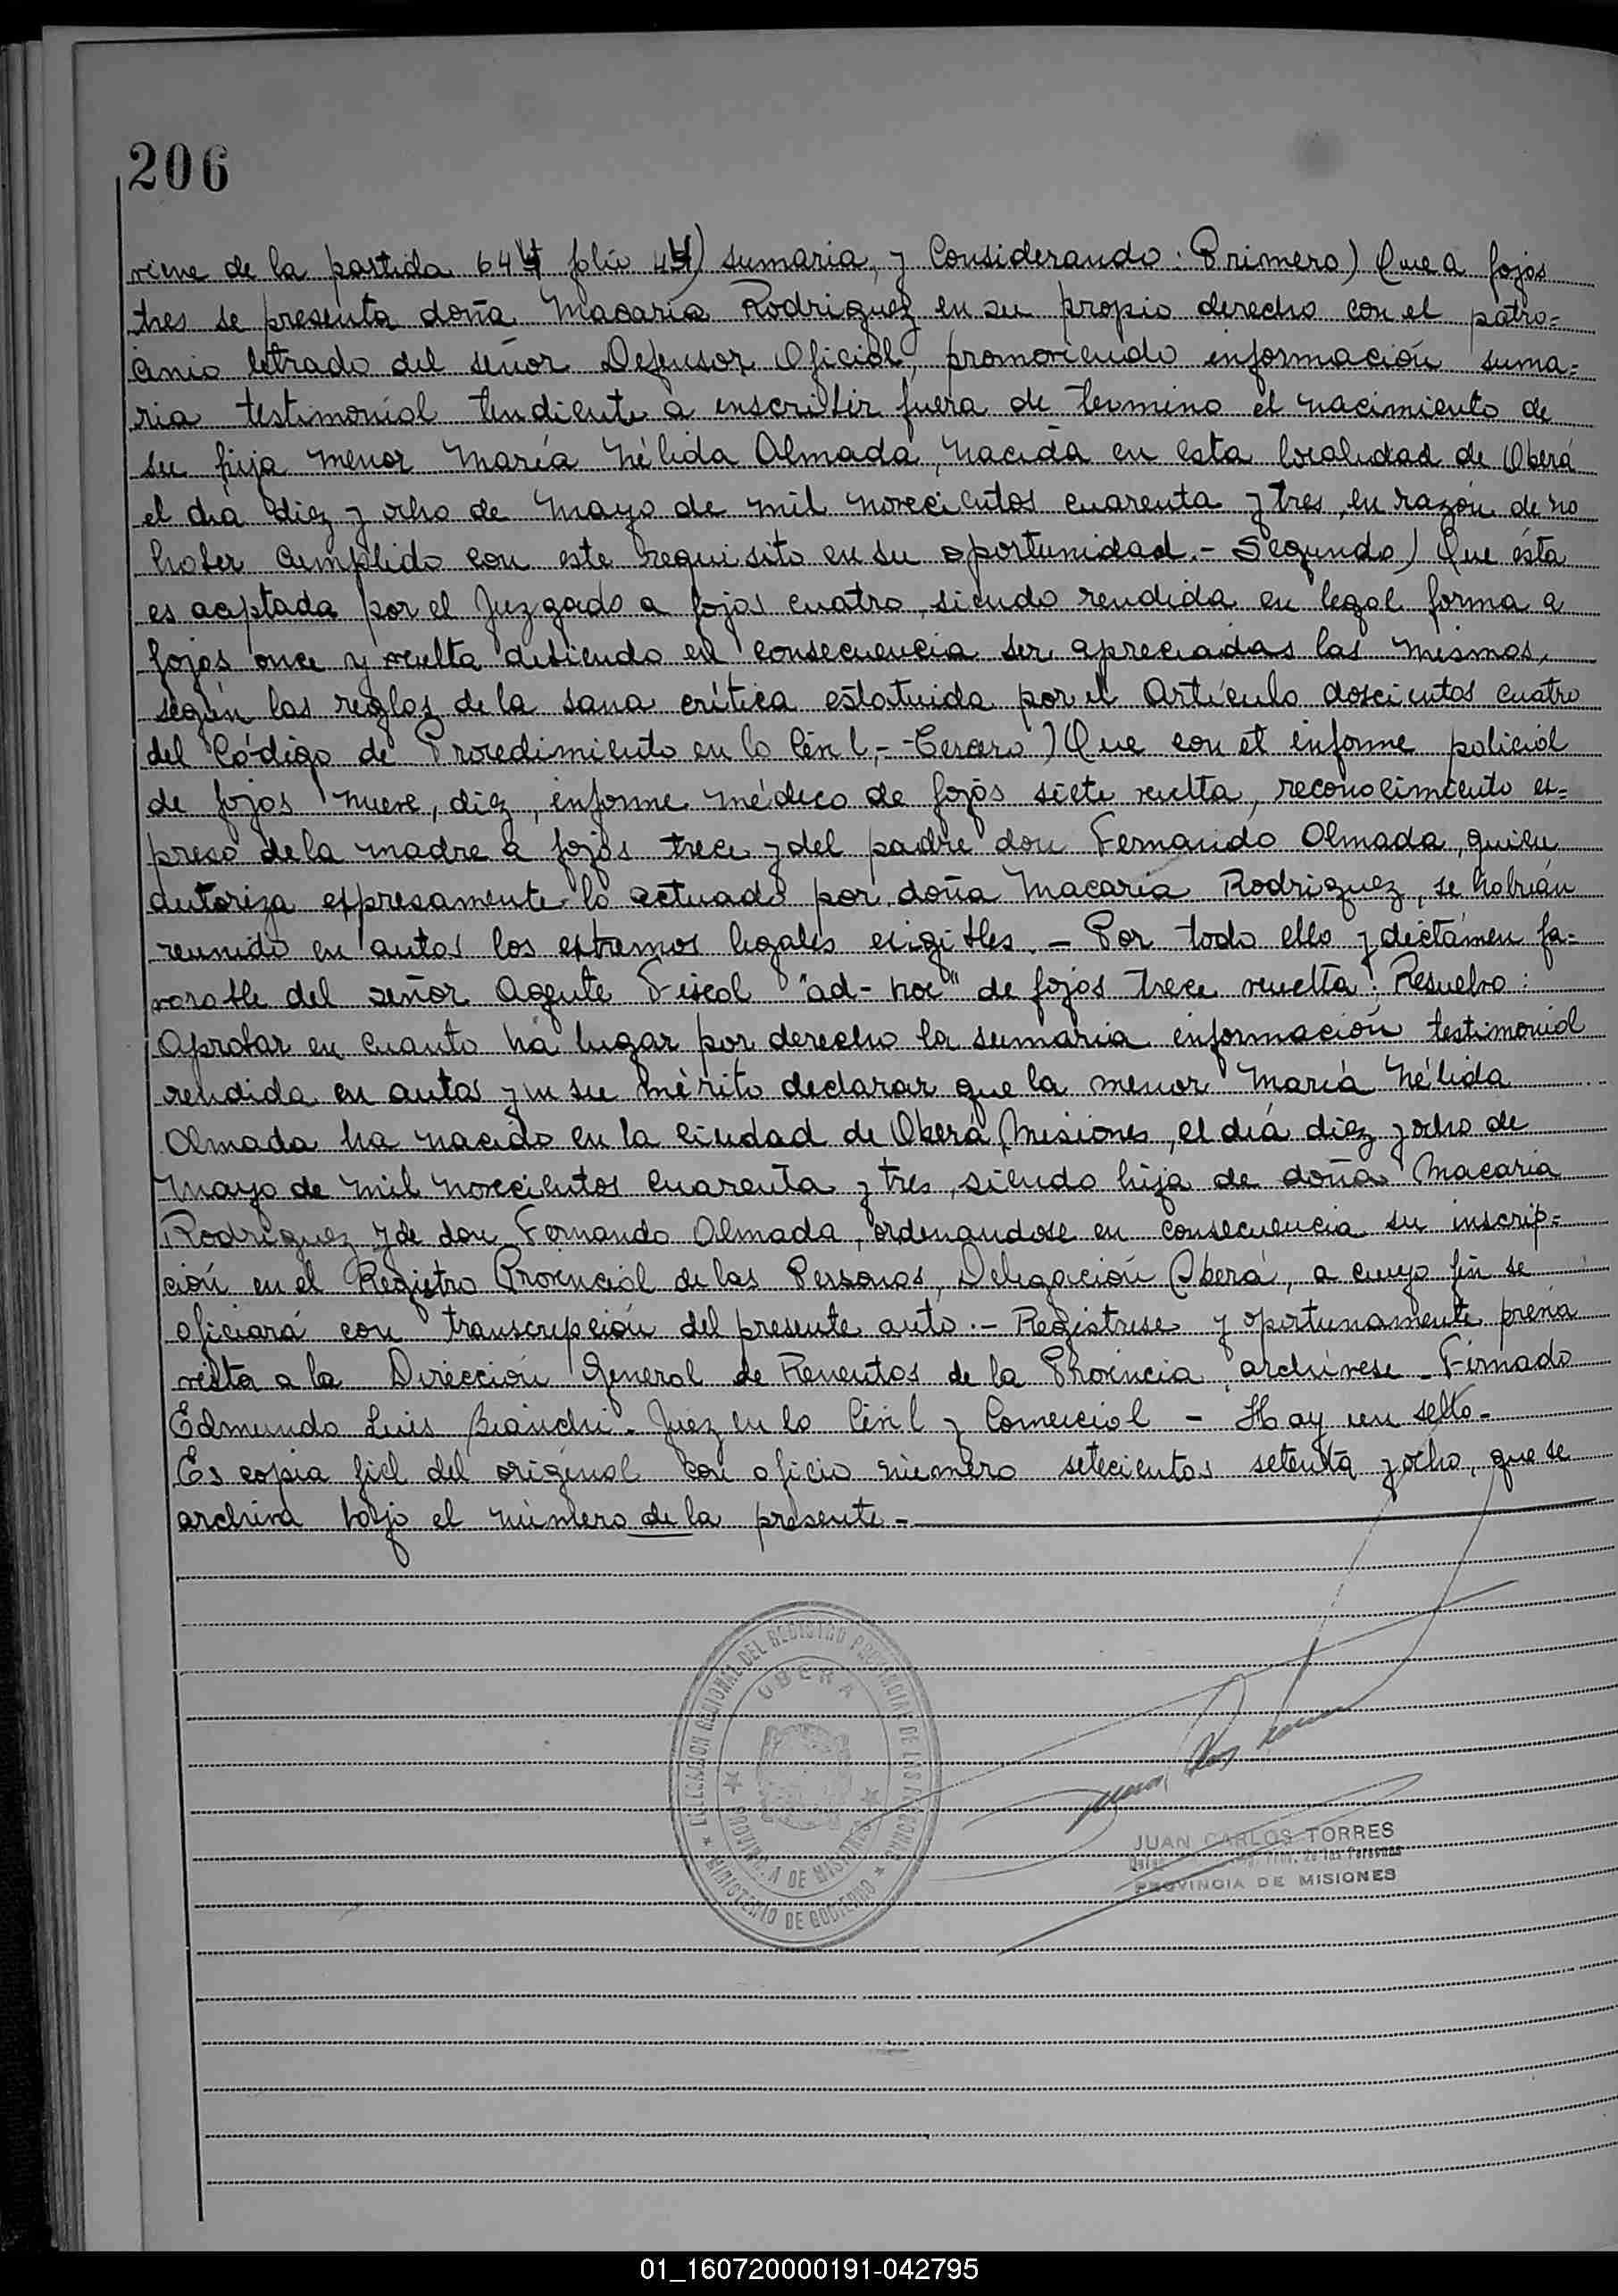 206
viene de la partida 644 folio 44) sumaria, y Considerando: Primero) Que a fojas
tres se presenta doña Macaria Rodriguez en su propio derecho con el patro=
cinio letrado del señor Defensor Oficial, promoviendo información suma=
ria testimonial tendiente a inscribir fuera de termino el nacimiento de
su hija menor María Nélida Almada, nacida en esta localidad de Oberá
el día diez y ocho de Mayo de mil novecientos cuarenta y tres, en razón de no
haber cumplido con este requisito en su oportunidad.- Segundo) Que ésta
es aceptada por el Juzgado a fojas cuatro, siendo rendida en legal forma a
fojas once y vuelta debiendo en consecuencia ser apreciadas las mismas,
según las reglas de la sana crítica estatuida por el Artículo doscientos cuatro
del Código de Procedimiento en lo Civil.- Tercero) Que con el informe policial
de fojas nueve, diez, informe médico de fojas siete vuelta, reconocimiento es=
preso de la madre a fojas trece y del padre don Fernando Almada, quien
autoriza expresamente lo actuado por doña Macaria Rodriguez, se habrían
reunido en autos los extremos legales exigibles.- Por todo ello y dictámen fa=
vorable del señor Agente Fiscal "ad-hoc" de fojas trece vuelta; Resuelvo:
Aprobar en cuanto ha lugar por derecho la sumaria información testimonial
rendida en autos y en su mérito declarar que la menor María Nélida
Almada ha nacido en la ciudad de Oberá, Misiones, el día diez y ocho de
Mayo de mil novecientos cuarenta y tres, siendo hija de doña Macaria
Rodriguez y de don Fernando Almada, ordenandose en consecuencia su inscrip=
ción en el Registro Provincial de las Personas, Delegación Oberá, a cuyo fin se
oficiará con transcripción del presente auto.- Registrese y oportunamente previa
vista a la Dirección General de Rentas de la Provincia, archivese - Firmado
Edmundo Luis Bianchi. Juez en lo Civil y Comercial - Hay un sello.-
Es copia fiel del original con oficio número setecientos setenta y ocho, que se
archiva bajo el número de la presente.-
DELEGACION REGIONAL DEL REGISTRO PROVINCIAL DE LAS PERSONAS
OBERA
PROVINCIA DE MISIONES
MINISTERIO DE GOBIERNO
JUAN CARLOS TORRES
Prov. de las Personas
PROVINCIA DE MISIONES
01_160720000191-042795